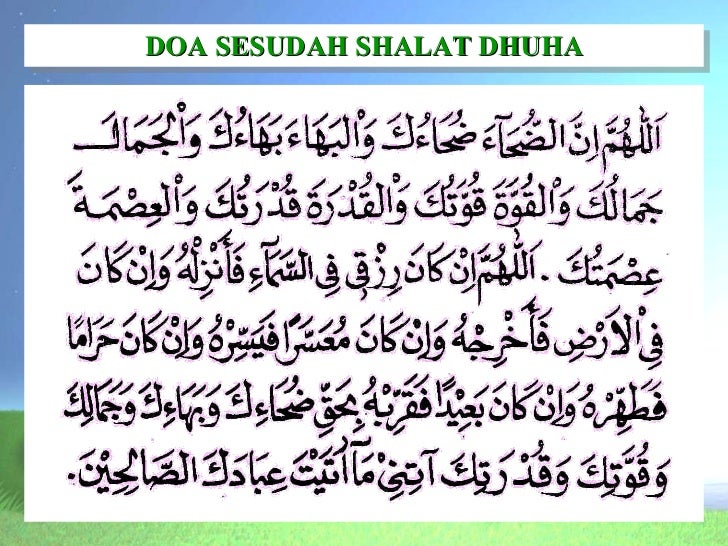 DOA SESUDAH SHALAT DHUHA
اَللّٰهُمَّ اِنَّ الضُّحَآءَ ضُحَاءُكَ وَالْبَهَاءَ بَهَاءُكَ وَالْجَمَالَ
جَمَالُكَ وَالْقُوَّةَ قُوَّتُكَ وَالْقُدْرَةَ قُدْرَتُكَ وَالْعِصْمَةَ
عِصْمَتُكَ . اَللّٰهُمَّ اِنْ كَانَ رِزْقِى فِى السَّمَآءِ فَأَنْزِلْهُ وَاِنْ كَانَ
فِى الْاَرْضِ فَأَخْرِجْهُ وَاِنْ كَانَ مُعَسَّرًا فَيَسِّرْهُ وَاِنْ كَانَ حَرَامًا
فَطَهِّرْهُ وَاِنْ كَانَ بَعِيْدًا فَقَرِّبْهُ بِحَقِّ ضُحَاءِكَ وَبَهَاءِكَ وَجَمَالِكَ
وَقُوَّتِكَ وَقُدْرَتِكَ آتِنِيْ مَآ اٰتَيْتَ عِبَادَكَ الصَّالِحِيْنَ.